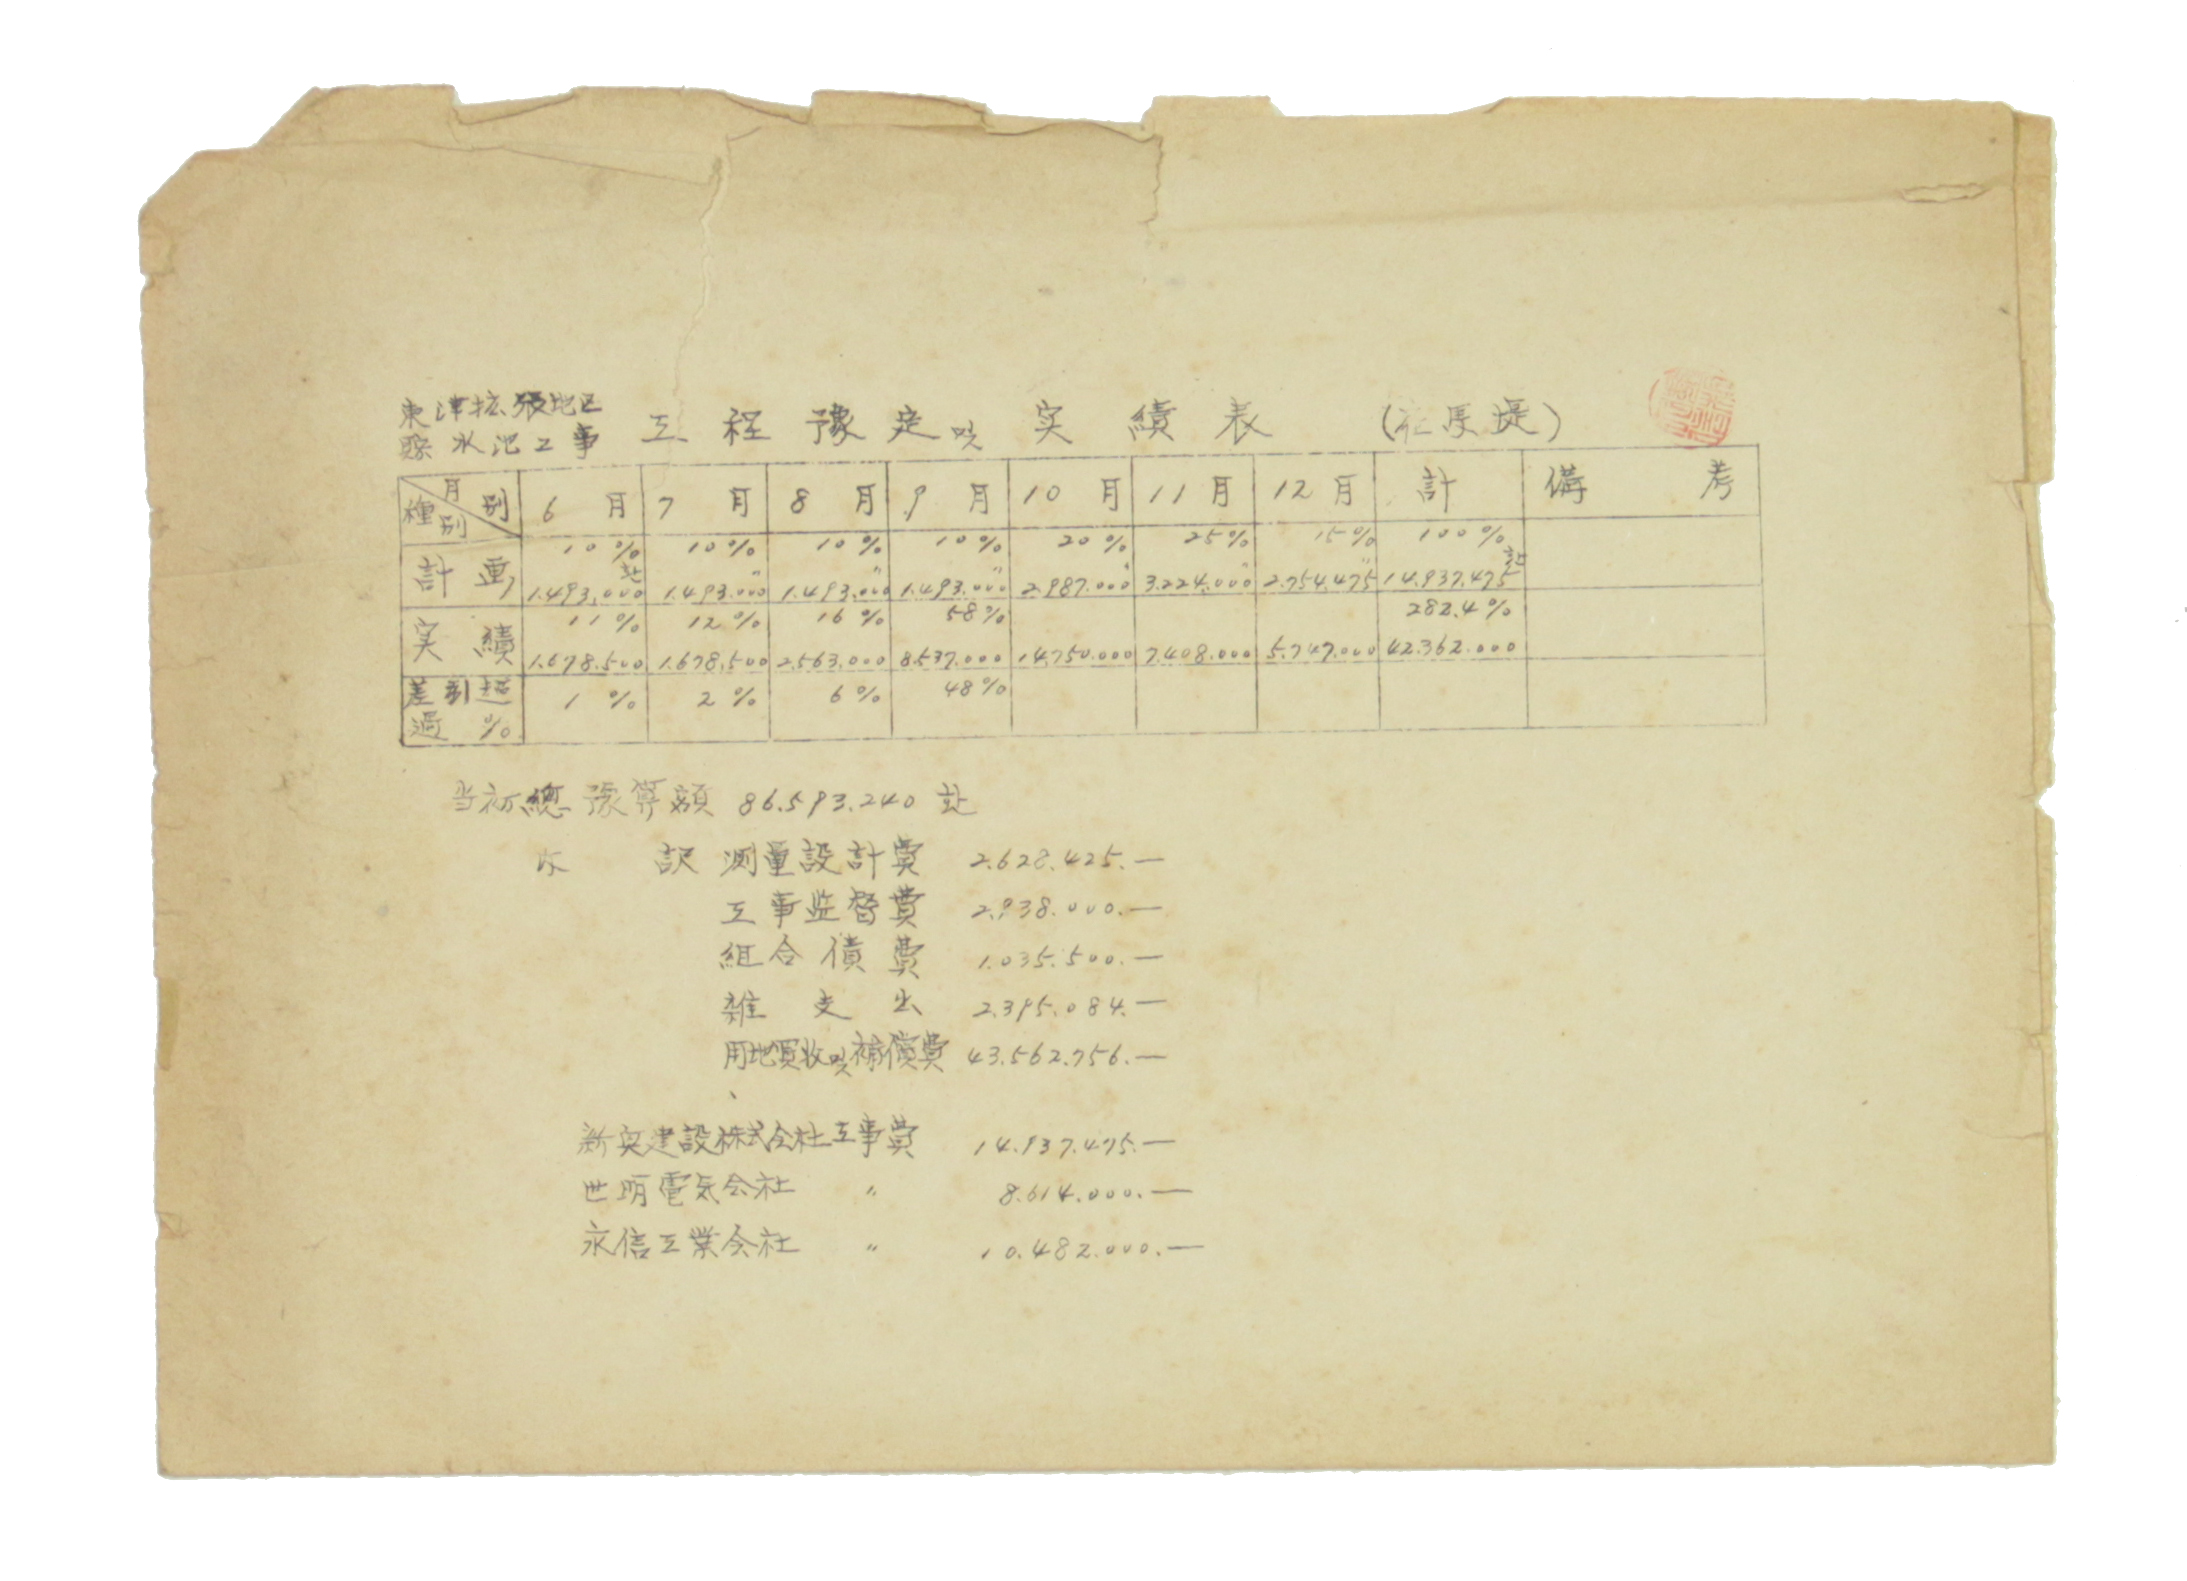 東津拡張地区
貯水池工事 工程豫定및実績表 (左岸堤)
月別 種別 6月 7月 8月 9月 10月 11月 12月 計 備考
計画 10% 10% 10% 10% 20% 25% 15% 100%
1.493.000 1.493.000 1.493.000 1.493.000 2.987.000 3.224.000 2.754.475 14.937.475
実績 11% 12% 16% 58% 282.4%
1.678.500 1.678.500 2.563.000 8.537.000 14.750.000 7.408.000 5.747.000 42.362.000
差引超過% 1% 2% 6% 48%
当初總豫算額 86.593.240
訳 測量設計費 2.628.425.—
工事监督費 2.938.000.—
組合債費 1.035.500.—
雑支出 2.395.084.—
用地買收및補償費 43.562.756.—
建設株式会社工事費 14.937.475.—
世明電気会社 〃 8.614.000.—
永信工業会社 〃 10.482.000.—